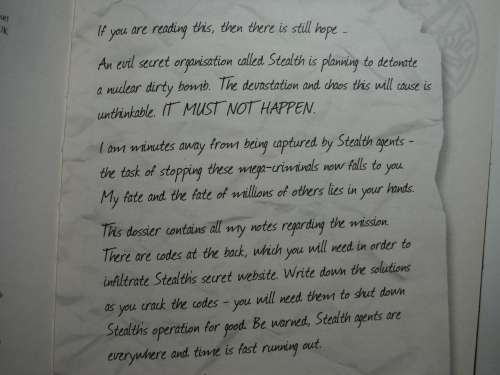 If you are reading this, then there is still hope ...
An evil secret organisation called Stealth is planning to detonate
a nuclear dirty bomb. The devastation and chaos this will cause is
unthinkable. IT MUST NOT HAPPEN.
I am minutes away from being captured by Stealth agents -
the task of stopping these mega-criminals now falls to you.
My fate and the fate of millions of others lies in your hands.
This dossier contains all my notes regarding the mission.
There are codes at the back, which you will need in order to
infiltrate Stealth's secret website. Write down the solutions
as you crack the codes - you will need them to shut down
Stealth's operation for good. Be warned, Stealth agents are
everywhere and time is fast running out.